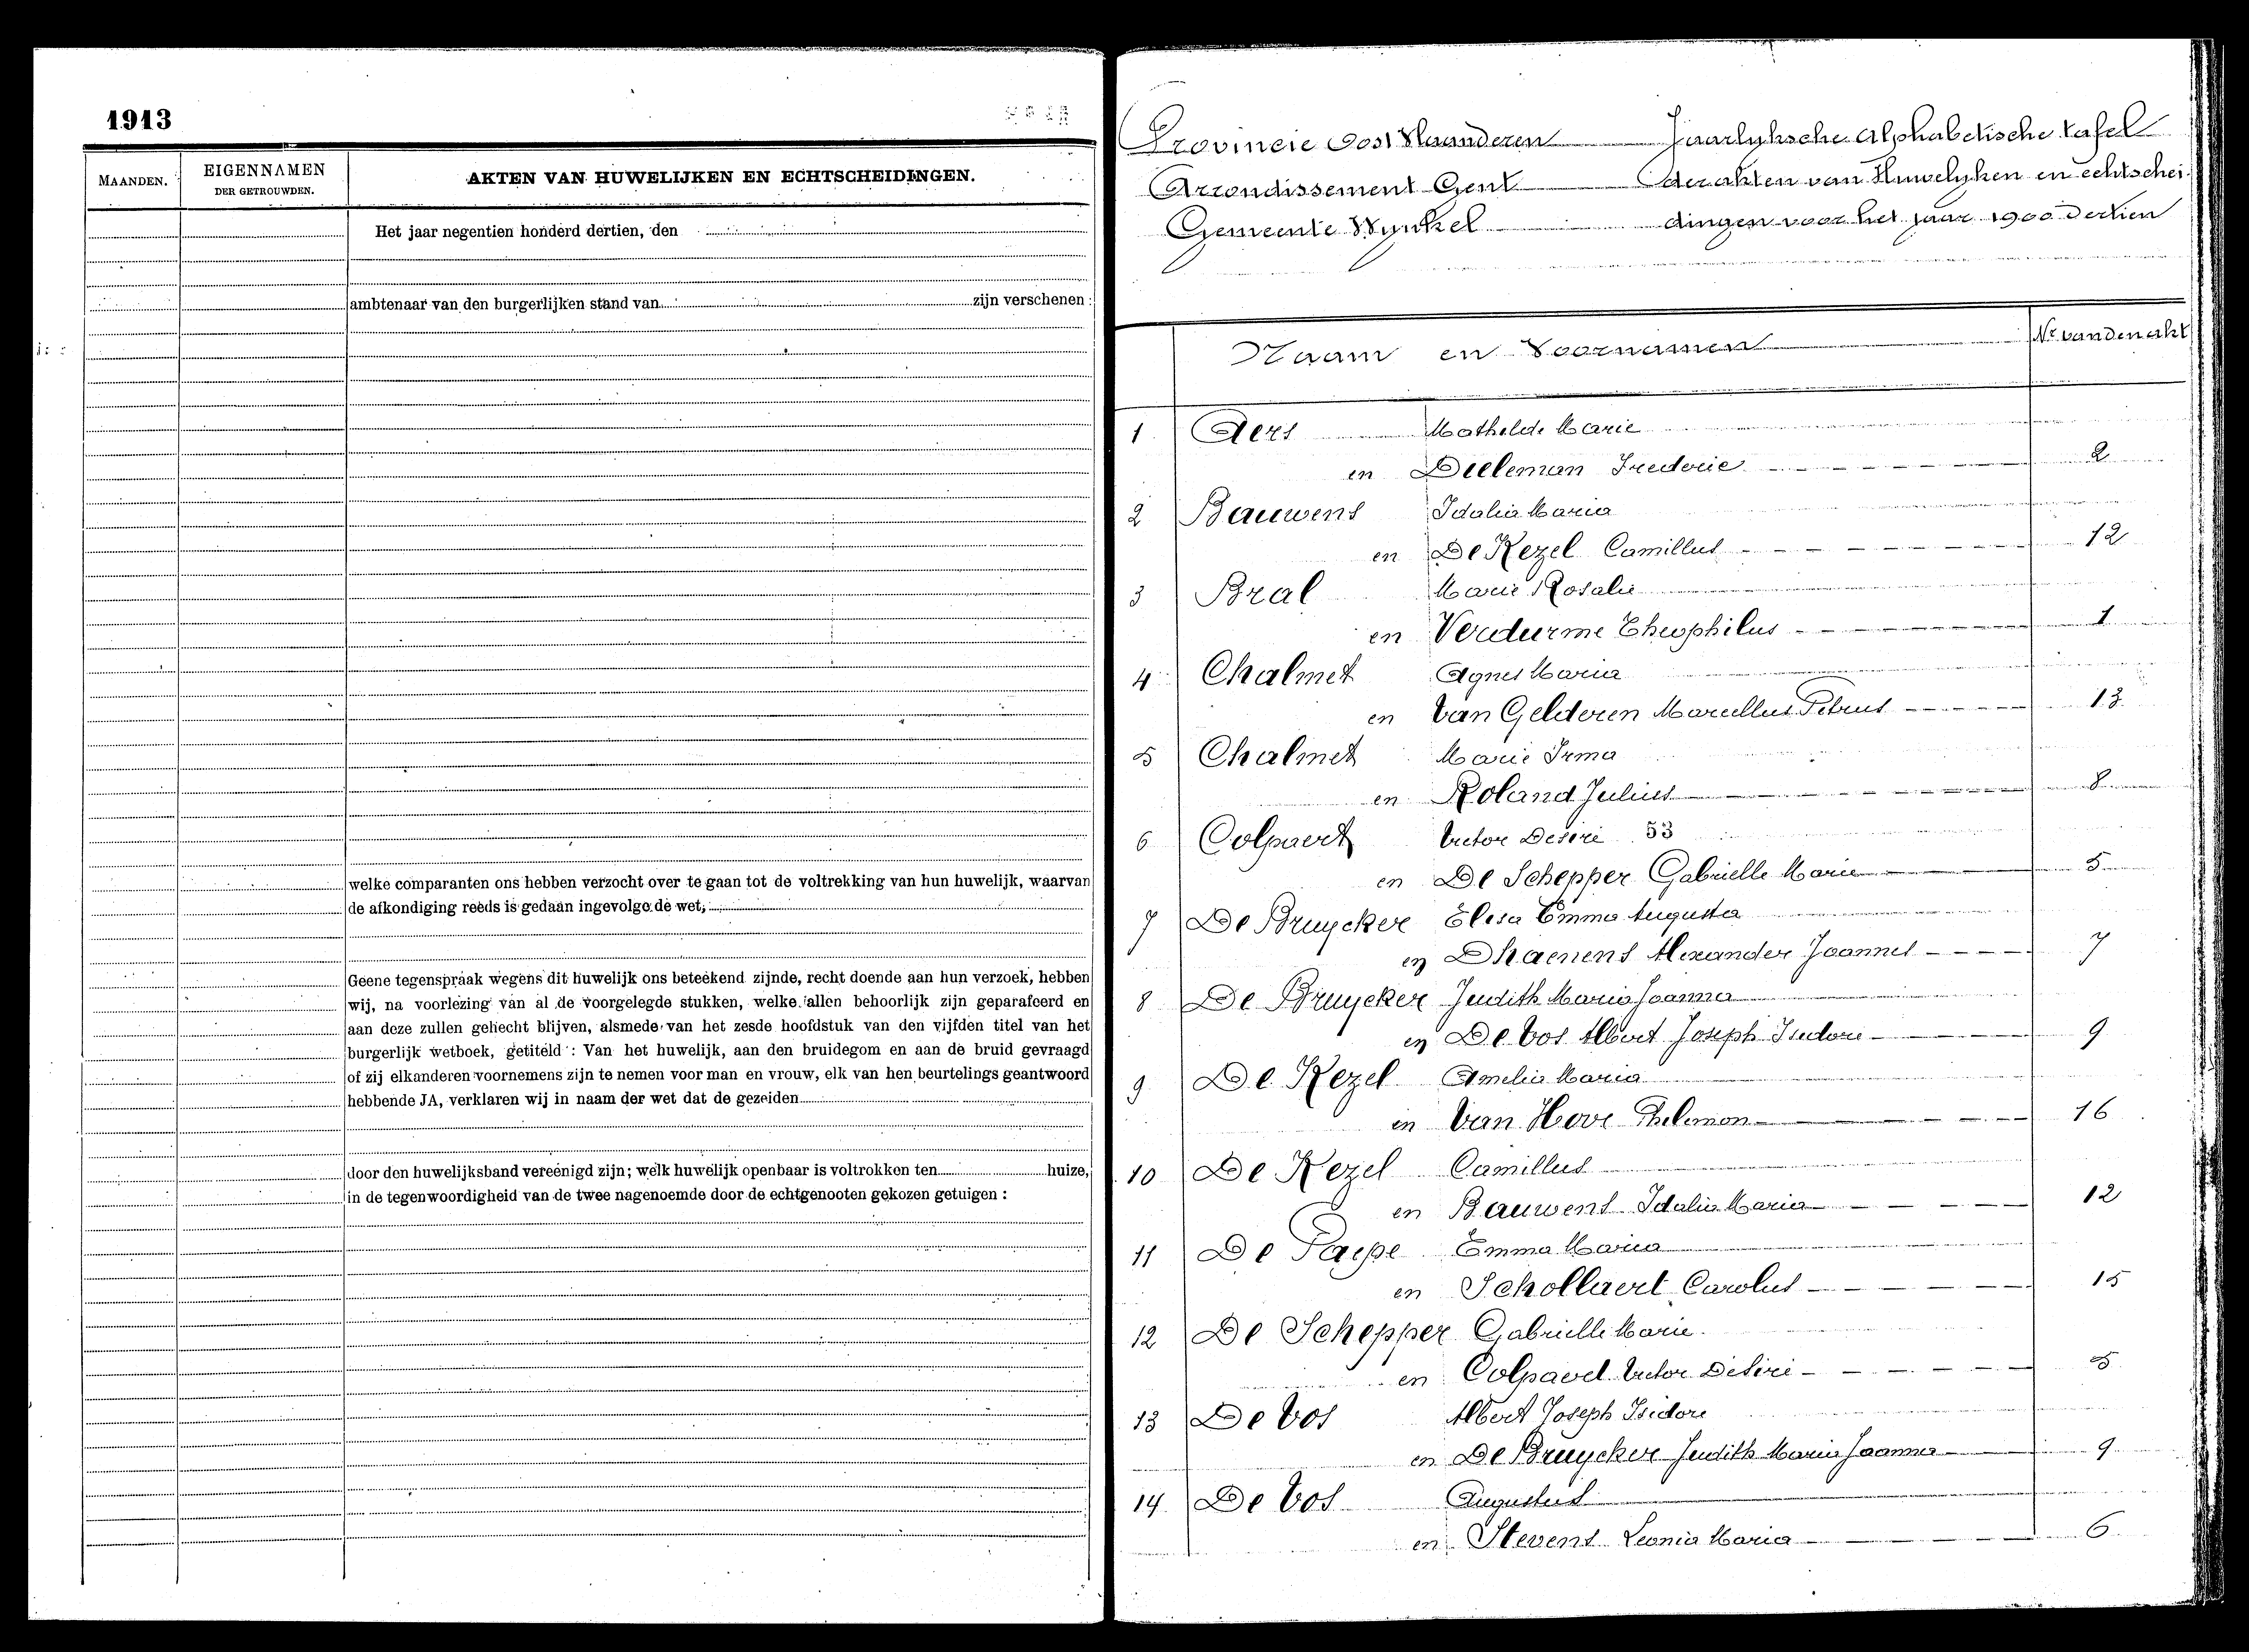 1913
MAANDEN.
EIGENNAMEN
DER GETROUWDEN.
AKTEN VAN HUWELIJKEN EN ECHTSCHEIDINGEN.
Het jaar negentien honderd dertien, den
ambtenaar van den burgerlijken stand van zijn verschenen :
welke comparanten ons hebben verzocht over te gaan tot de voltrekking van hun huwelijk, waarvan
de afkondiging reeds is gedaan ingevolge de wet;
Geene tegenspraak wegens dit huwelijk ons beteekend zijnde, recht doende aan hun verzoek, hebben
wij, na voorlezing van al de voorgelegde stukken, welke allen behoorlijk zijn geparafeerd en
aan deze zullen gehecht blijven, alsmede van het zesde hoofdstuk van den vijfden titel van het
burgerlijk wetboek, getiteld : Van het huwelijk, aan den bruidegom en aan de bruid gevraagd
of zij elkanderen voornemens zijn te nemen voor man en vrouw, elk van hen beurtelings geantwoord
hebbende JA, verklaren wij in naam der wet dat de gezeiden
door den huwelijksband vereenigd zijn; welk huwelijk openbaar is voltrokken ten huize,
in de tegenwoordigheid van de twee nagenoemde door de echtgenooten gekozen getuigen :
Provincie Oost Vlaanderen Jaarlyksche Alphabetische tafel
Arrondissement Gent der akten van Huwelyken en echtschei
Gemeente Wynkel dingen voor het jaar 1900 dertien
Naam en Voornamen Nr van den akt
1 Aers Mathilde Marie
en Dieleman Frederic 2
2 Bauwens Idalia Maria
en De Kezel Camillus 12
3 Bral Marie Rosalie
en Verdurme Theophilus 1
4 Chalmet Agnes Maria
en Van Gelderen Marcellus Petrus 13
5 Chalmet Marie Irma
en Roland Julius 8
6 Colpaert Victor Desiré 53
en De Schepper Gabrielle Marie 5
7 De Bruycker Elisa Emma Augusta
en Dhaenens Alexander Joannes 7
8 De Bruycker Judith Maria Joanna
en De Vos Albert Joseph Isidore 9
9 De Kezel Amelia Maria
en Van Hove Philemon 16
10 De Kezel Camillus
en Bauwens Idalia Maria 12
11 De Paepe Emma Maria
en Schollaert Carolus 15
12 De Schepper Gabrielle Marie.
en Colpaert Victor Desiré 5
13 De Vos Albert Joseph Isidore
en De Bruycker Judith Maria Joanna 9
14 De Vos Augustus
en Stevens Leonia Maria 6